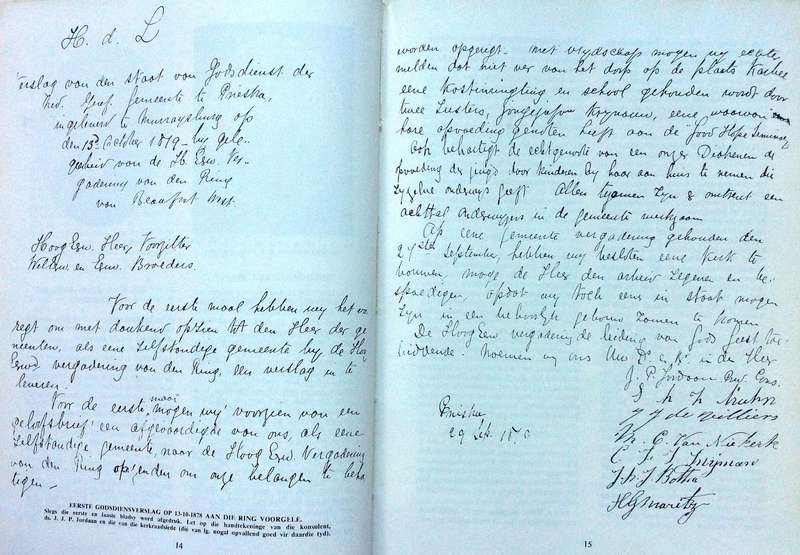 H. d. L
Verslag van den staat van Godsdienst der
Ned. Geref. Gemeente te Prieska,
ingeleverd te Murraysburg op
den 13de October 1879 by gele-
genheid van de H. Eerw. Ver-
gadering van den Ring
van Beaufort West.
Hoog Eerw. Heer Voorzitter
WelEerw. en Eerw. Broeders.
Voor de eerste maal hebben wy het vo
regt om met dankend opzien tot den Heer der ge
meenten, als eene zelfstandige gemeente by de Hoog
Eerwd vergadering van den Ring, een verslag in te
leveren.
Voor de eerste maal mogen wy voorzien van een
geloofsbrief een afgevaardigde van ons, als eene
zelfstandige gemeente, naar de Hoog Eerw. Vergadering
van den Ring opzenden om onze belangen te beha
tigen.
EERSTE GODSDIENSVERSLAG OP 13-10-1878 AAN DIE RING VOORGELÊ.
Slegs die eerste en laaste bladsy word afgedruk. Let op die handtekeninge van die konsulent,
ds. J. J. P. Jordaan en dié van die kerkraadslede (die van lg. nogal opvallend goed vir daardie tyd).
14
worden opgerigt. Met blydschap mogen wy echter
melden dat niet ver van het dorp op de plaats
eene kostinrigting en school gehouden wordt door
twee zusters, Jongejufvr. Krynauw, eene waarvan
hare opvoeding genoten heeft aan de Good Hope Seminary
Ook behartigt de echtgenote van een onzer Diakenen de
opvoeding der jeugd door kinderen by haar aan huis te nemen die
zyzelve onderwys geeft. Allen te zamen zyn er omtrent een
achttal onderwyzers in de gemeente werkzaam
Op eene gemeente vergadering gehouden den
September, hebben wy besloten eene Kerk te
bouwen, moge de Heer den arbeid zegenen en be-
spoedigen, opdat wy toch eens in staat mogen
zyn in een behoorlyk gebouw zamen te komen
De Hoog Eerw vergadering de leiding van Gods Geest toe-
biddende. Noemen wy ons Uw Dr. en Br. in de Heer
J. P. Jordaan Consl.
de Villiers
M. C. van Niekerk
C. J. J. Snyman
J. H. J. Botha
H G J Maritz
Prieska
29 Sept.
15